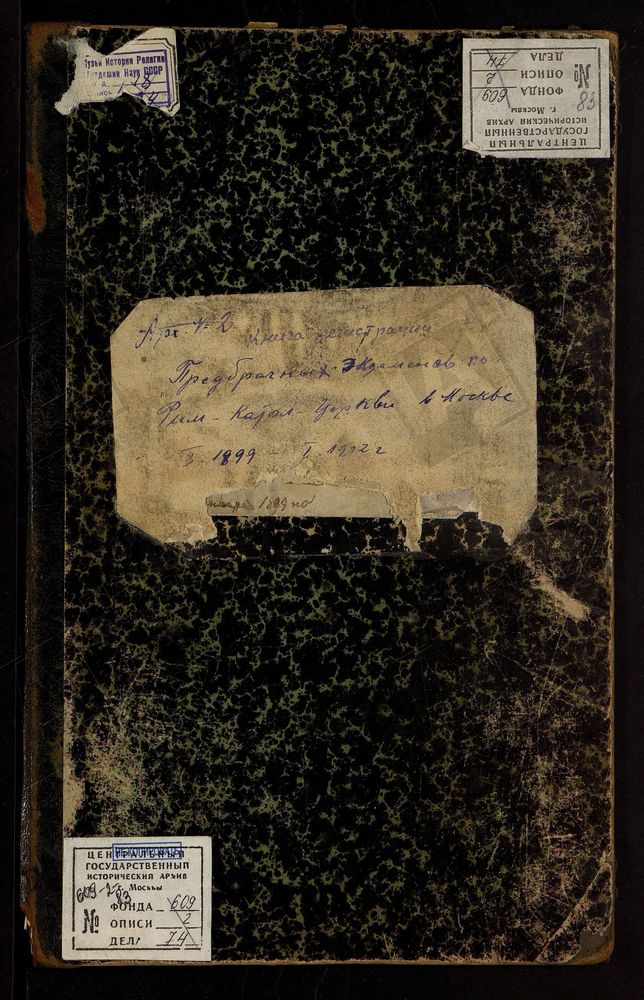 Музей Истории Религии
Академии Наук СССР
ЦЕНТРАЛЬНЫЙ
ГОСУДАРСТВЕННЫЙ
ИСТОРИЧЕСКИЙ АРХИВ
г. Москвы
ФОНДА 609
№ ОПИСИ 2
83 ДЕЛА 74
Арх. № 2
Книга регистрации
Предбрачных экзаменов по
Рим-катол-церкви в Москве
I. 1899 – I. 1912 г
1899 по
ЦЕНТРАЛЬНЫЙ
ГОСУДАРСТВЕННЫЙ
ИСТОРИЧЕСКИЙ АРХИВ
г. Москвы
609-2-83
ФОНДА 609
№ ОПИСИ 2
ДЕЛА 74